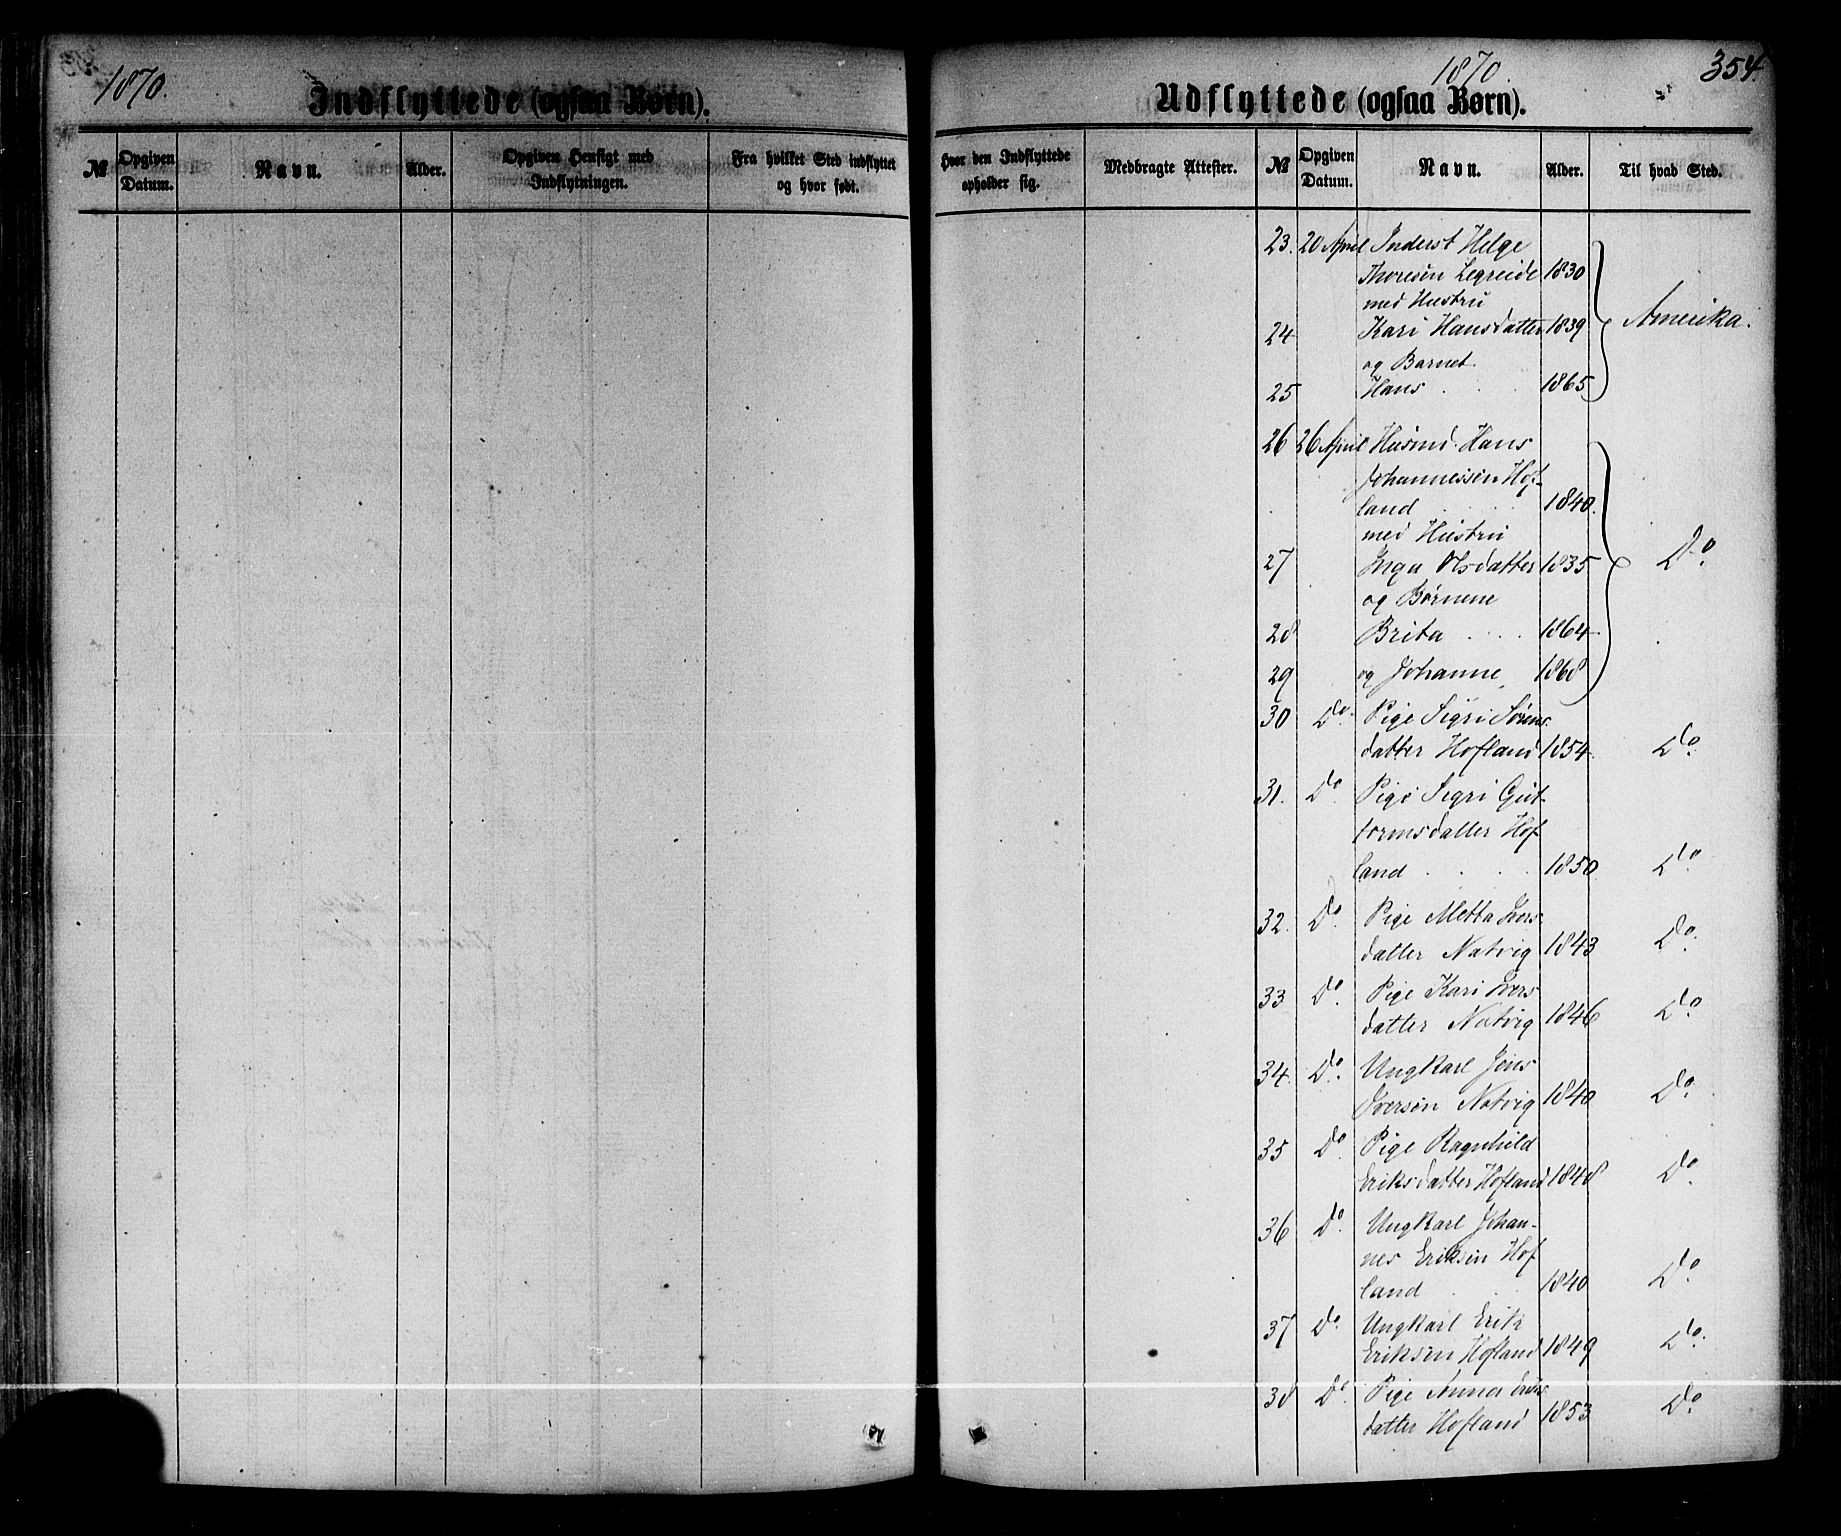 1870.
Indflyttede (ogsaa Børn).
№
Opgiven Datum.
Navn.
Alder.
Opgiven Hensigt med Indflytningen.
Fra hvilket Sted indflyttet og hvor født.
1870.
354
Udflyttede (ogsaa Børn).
Hvor den Indflyttede opholder sig.
Medbragte Attester.
№
Opgiven Datum.
Navn.
Alder.
Til hvad Sted.
23. 20 April Inderst Helge
Thoresen Legreide 1830
med Hustru
24 Kari Hansdatter 1839 Amerika.
og Barnet
25 Hans 1865
26 26 April Husmd. Hans
Johannessen Hof-
land 1840.
med Hustru
27 Inga Olsdatter 1835 Do.
og Børnene
28 Brita 1864
29 og Johanne 1868
30 Do. Pige Sigri Sørens
datter Hofland 1854 Do.
31. Do. Pige Sigri Gut
tormsdatter Hof
land 1850 Do.
32. Do. Pige Metta Ivers
datter Natvig 1843 Do.
33 Do. Pige Kari Ivers
datter Natvig 1846 Do.
34. Do. Ungkarl Jens
Iversen Natvig 1840 Do.
35 Do. Pige Ragnhild
Eriksdatter Hofland 1848 Do.
36 Do. Ungkarl Johan-
nes Eriksen Hof
land 1840 Do.
37 Do. Ungkarl Erik
Eriksen Hofland 1849 Do.
38 Do. Pige Anna Eriks
datter Hofland 1853 Do.